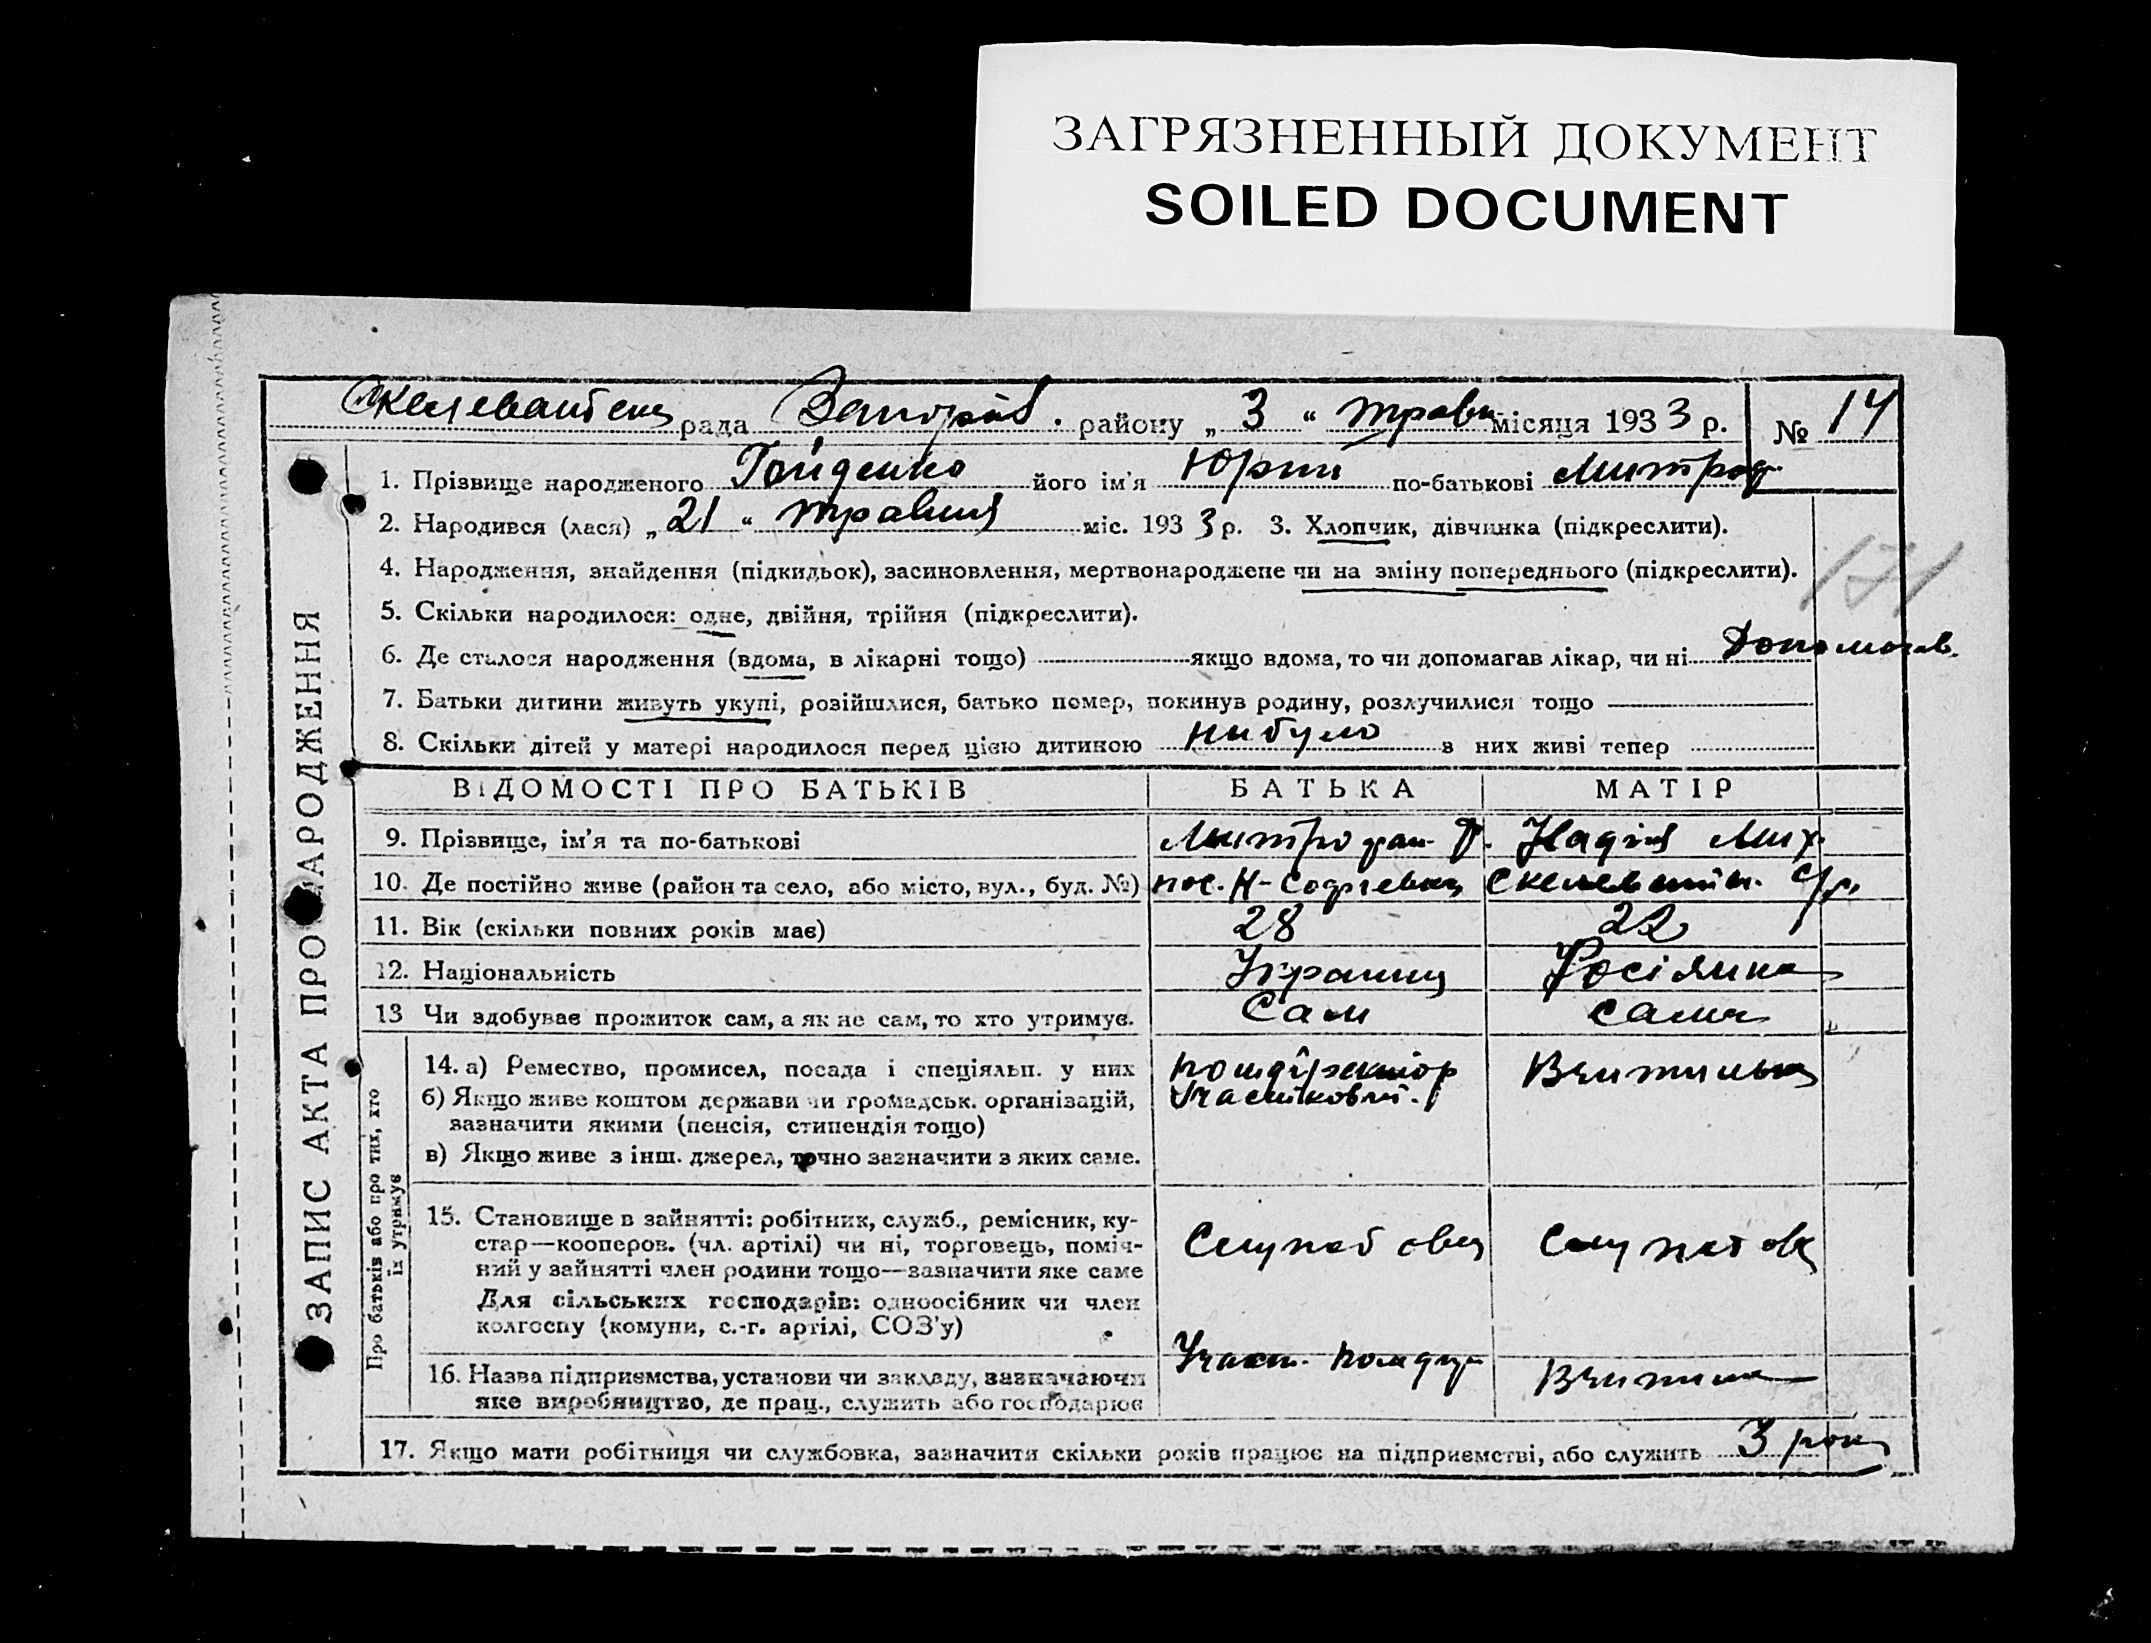 ЗАГРЯЗНЕННЫЙ ДОКУМЕНТ
SOILED DOCUMENT
рада району „ 3 “ травн місяця 193 3 р. № 14
1. Прізвище народженого Гайденко його ім'я Юрий по-батькові Митроф
2. Народився (лася) „ 21 “ травня міс. 193 3 р. 3. Хлопчик, дівчинка (підкреслити).
171
4. Народження, знайдення (підкидьок), засиновлення, мертвонароджене чи на зміну попереднього (підкреслити).
5. Скільки народилося: одне, двійня, трійня (підкреслити).
6. Де сталося народження (вдома, в лікарні тощо) якщо вдома, то чи допомагав лікар, чи ні Допомогав.
7. Батьки дитини живуть укупі, розійшлися, батько помер, покинув родину, розлучилися тощо
8. Скільки дітей у матері народилося перед цією дитиною ни було з них живі тепер
ВІДОМОСТІ ПРО БАТЬКІВ БАТЬКА МАТІР
9. Прізвище, ім'я та по-батькові Митрофан Ф. Надія Мих.
10. Де постійно живе (район та село, або місто, вул., буд. №) пос. Н-Софіевка с/р.
11. Вік (скільки повних років має) 28 22
12. Національність Українец Росіянка
13 Чи здобуває прожиток сам, а як не сам, то хто утримує. Сам сама
14. а) Ремество, промисел, посада і спеціяльн. у них Вчителька
б) Якщо живе коштом держави чи громадськ. організацій,
зазначити якими (пенсія, стипендія тощо)
в) Якщо живе з інш. джерел, точно зазначити з яких саме.
15. Становище в зайнятті: робітник, служб., ремісник, ку-
стар—кооперов. (чл. артілі) чи ні, торговець, поміч-
ний у зайнятті член родини тощо—зазначити яке саме
Для сільських господарів: одноосібник чи член
колгоспу (комуни, с.-г. артілі, СОЗ'у)
16. Назва підприємства, установи чи закладу, зазначаючи
яке виробництво, де прац., служить або господарює
17. Якщо мати робітниця чи службовка, зазначити скільки років працює на підприємстві, або служить 3 роки
ЗАПИС АКТА ПРО НАРОДЖЕННЯ
Про батьків або про тих, хто
їх утримує